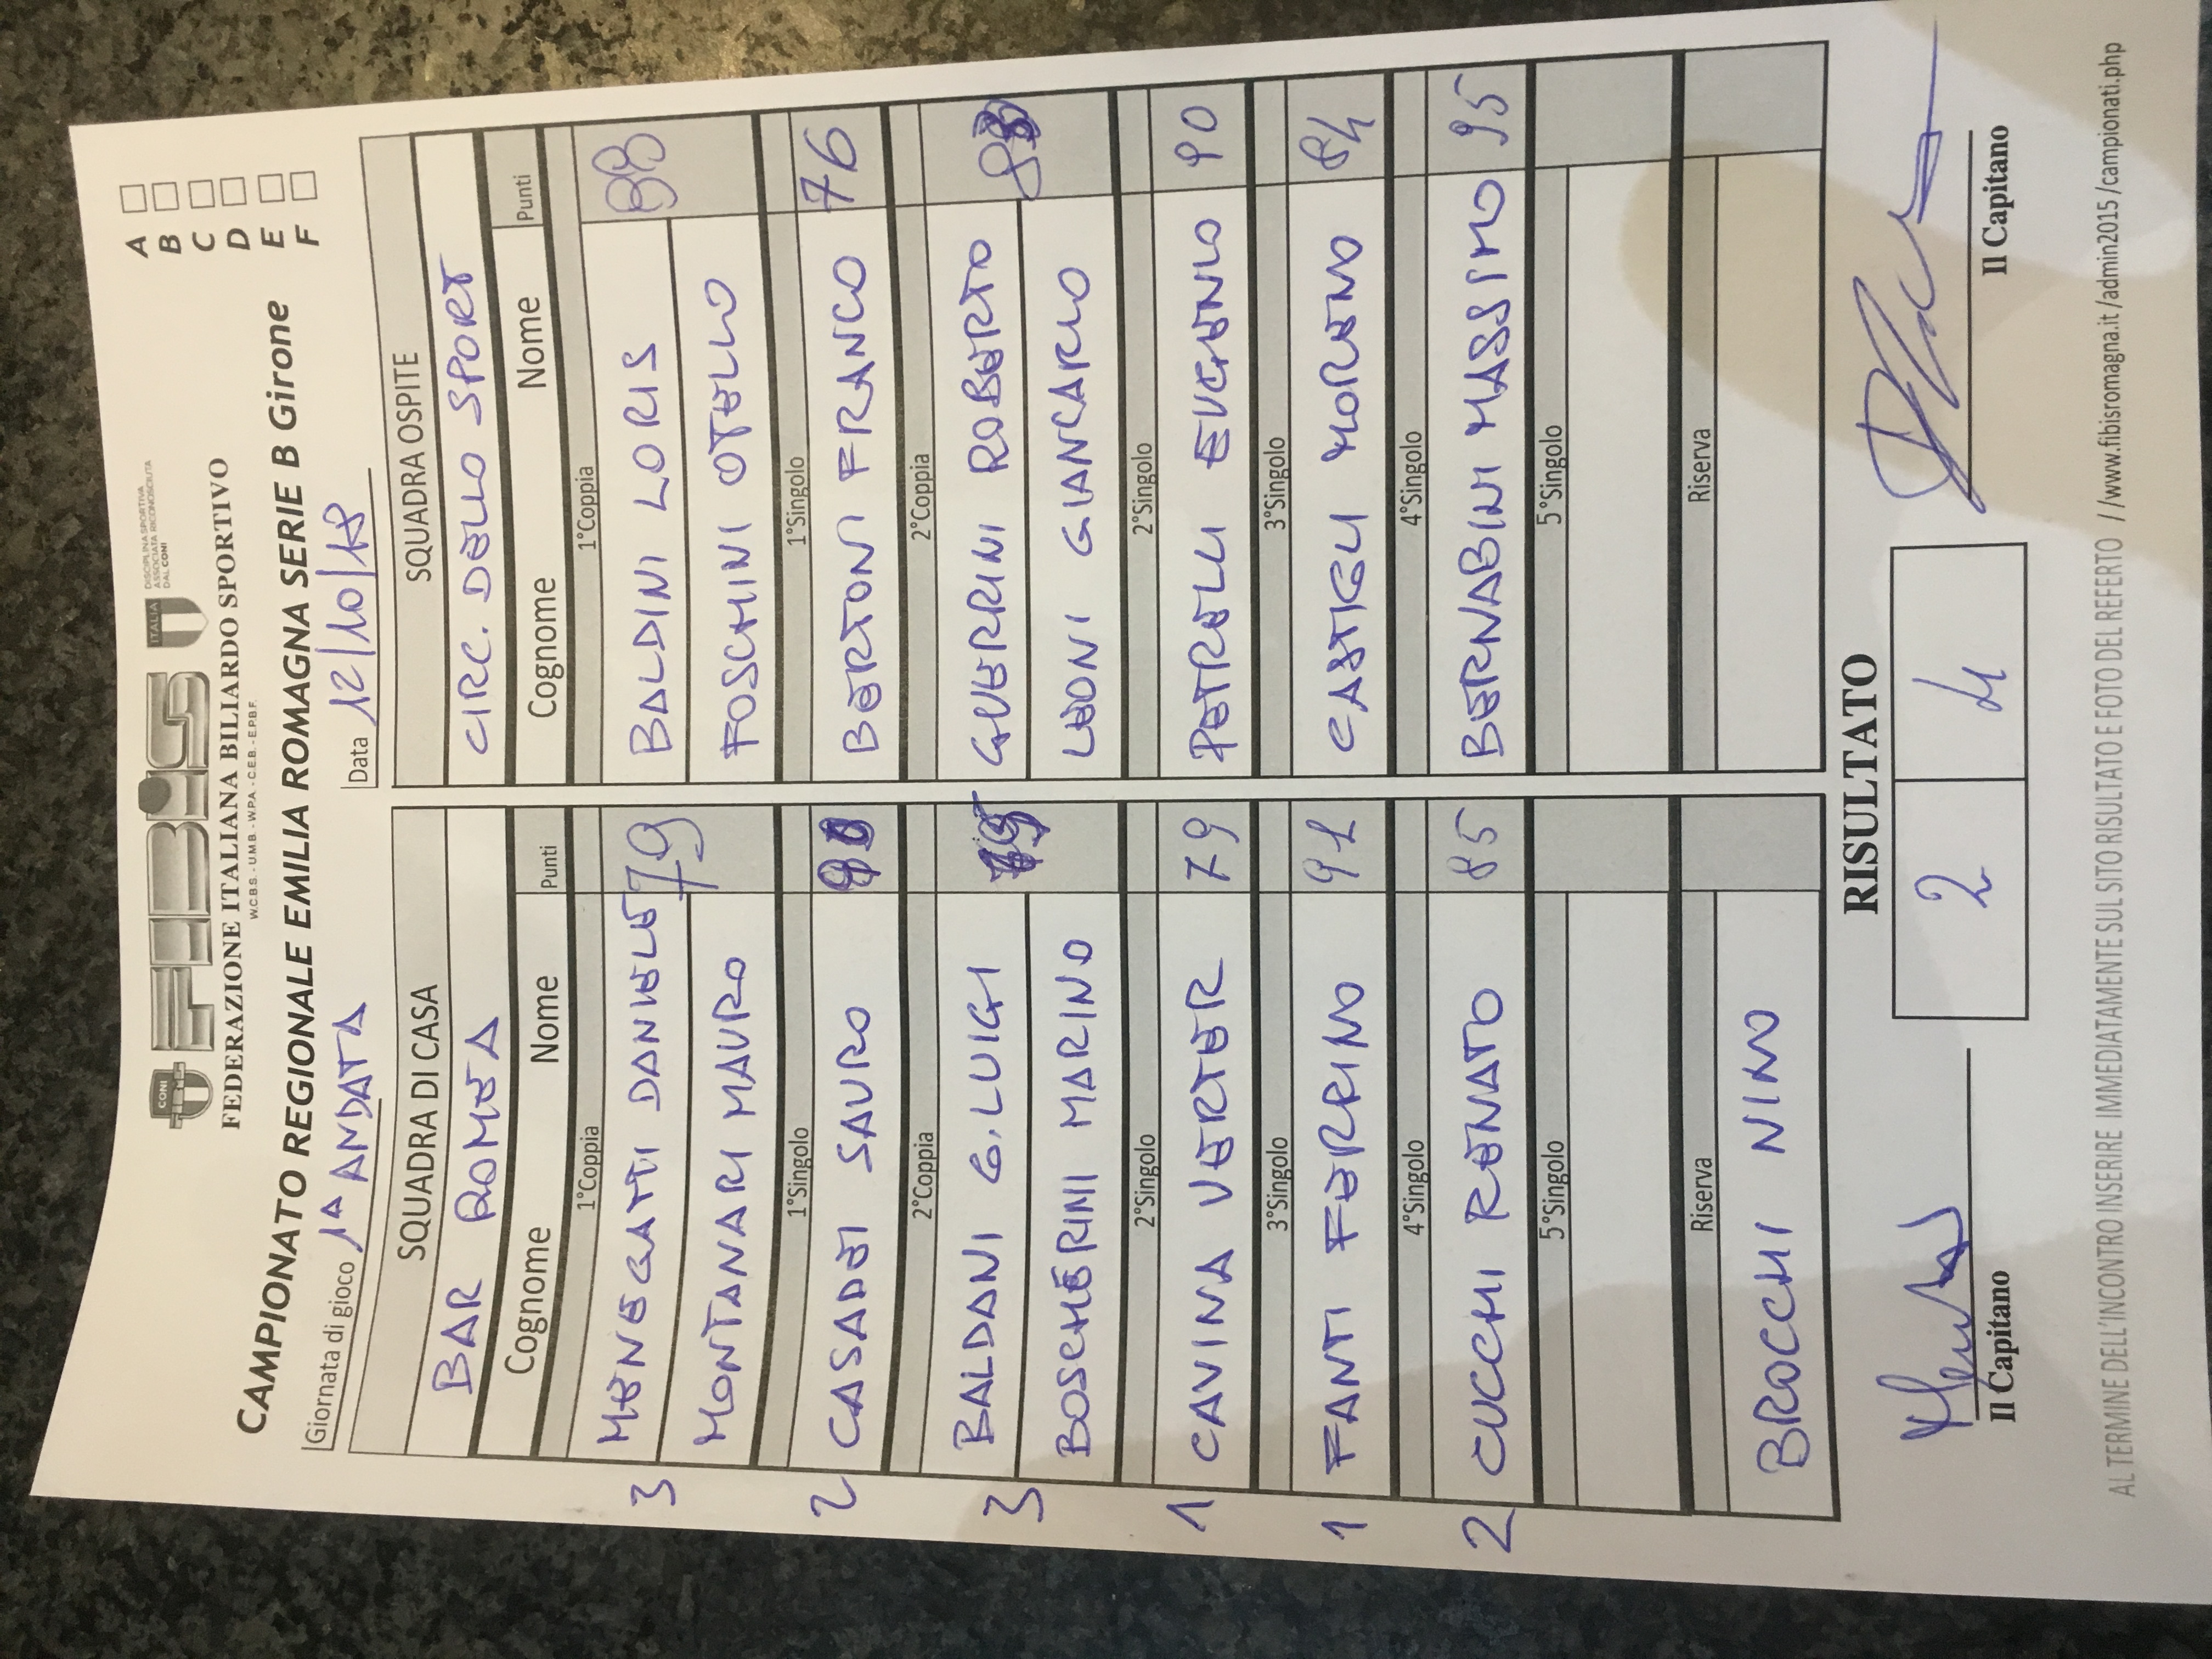 CONI
FEBIS
ITALIA
DISCIPLINA SPORTIVA
ASSOCIATA RICONOSCIUTA
DAL CONI
FEDERAZIONE ITALIANA BILIARDO SPORTIVO
W.C.B.S. - U.M.B. - W.P.A. - C.E.B. - E.P.B.F.
CAMPIONATO REGIONALE EMILIA ROMAGNA SERIE B Girone
A
B
C
D
E
F
Giornata di gioco 1ª ANDATA Data 12/10/18
SQUADRA DI CASA SQUADRA OSPITE
BAR ROMEA CIRC. DELLO SPORT
Cognome Nome Punti Cognome Nome Punti
1°Coppia 1°Coppia
3 MENEGATTI DANIELE 79 BALDINI LORIS 88
MONTANARI MAURO FOSCHINI OTELLO
1°Singolo 1°Singolo
2 CASADEI SAURO BERTONI FRANCO 76
2°Coppia 2°Coppia
3 BALDANI G.LUIGI GUERRINI ROBERTO
BOSCHERINI MARINO LEONI GIANCARLO
2°Singolo 2°Singolo
1 CAVINA VERTER 79 PETRELLI EUGENIO 90
3°Singolo 3°Singolo
1 FANTI FERRINO 91 CASTIGLI MORENO 84
4°Singolo 4°Singolo
2 CUCCHI RENATO 85 BERNABINI MASSIMO 95
5°Singolo 5°Singolo
Riserva Riserva
BROCCHI NINO
RISULTATO
2 4
Il Capitano Il Capitano
AL TERMINE DELL'INCONTRO INSERIRE IMMEDIATAMENTE SUL SITO RISULTATO E FOTO DEL REFERTO //www.fibisromagna.it /admin2015 /campionati.php